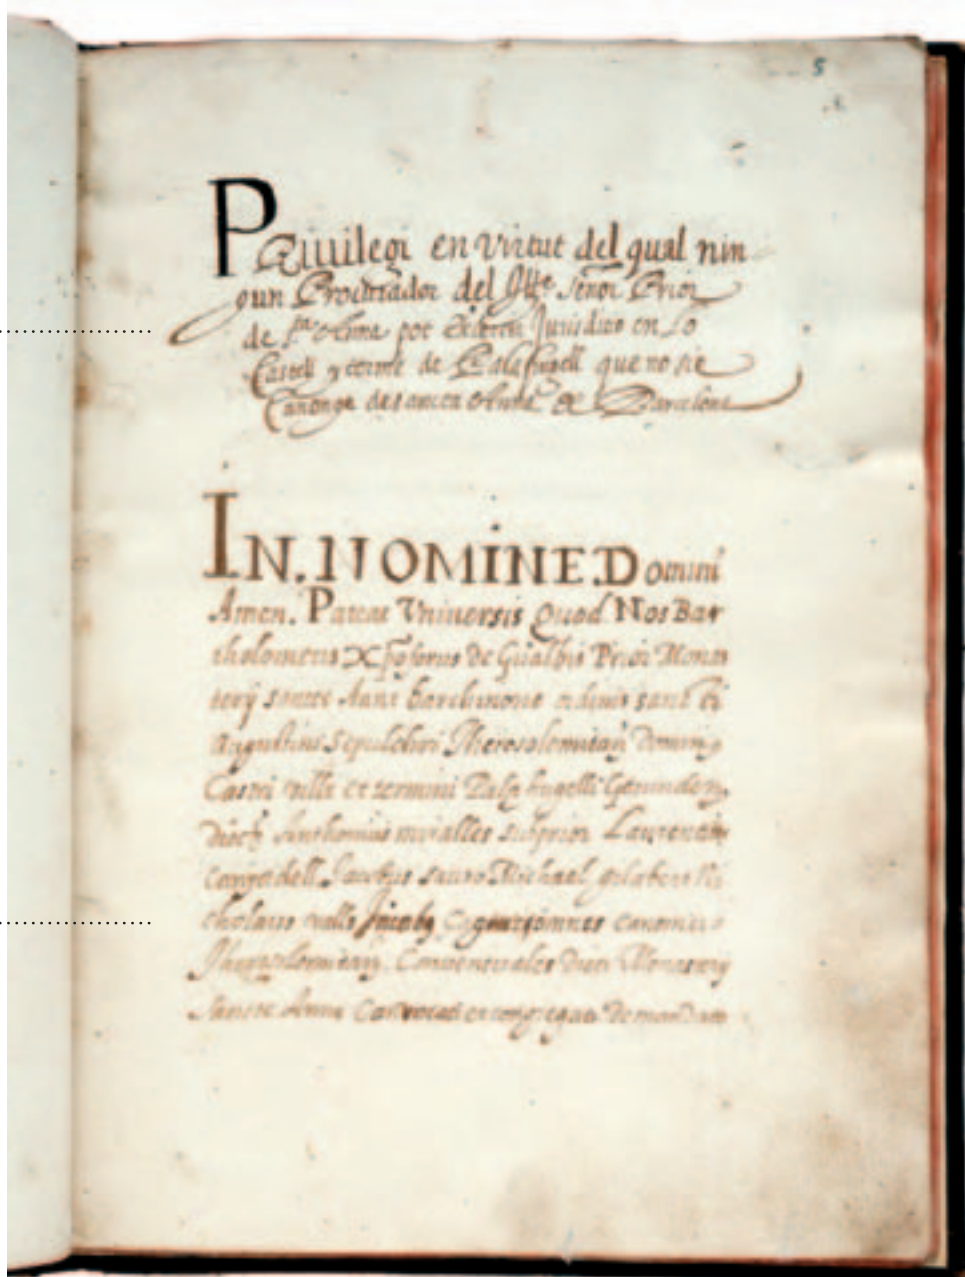 5
Priuilegi en virtut del qual nin
gun Procurador del Ille Señor Prior
de Sta Anna pot exercir Juridico en lo
Castell y terme de Palafrugell que no sie
Canonge de sancta Anna de Barcelona
IN. NOMINE. Domini
Amen. Pateat Vniuersis Quod Nos Bar
tholomeus Xpoforus de Gualbis Prior Monas
terij sancte Anne barchinone ordinis sancti
Augustini Sepulchri Iherosolomitan Domini
Castri ville et termini Palafrugelli Gerunden
dioc Anthonius miralles supprior Laurenti
Michael gilabert Ni
cholaus valls Jacobus omnes canonici
Iherosolomitan Conventuales dicti Monasterij
sancte Anne Convocati et congregati de mandato